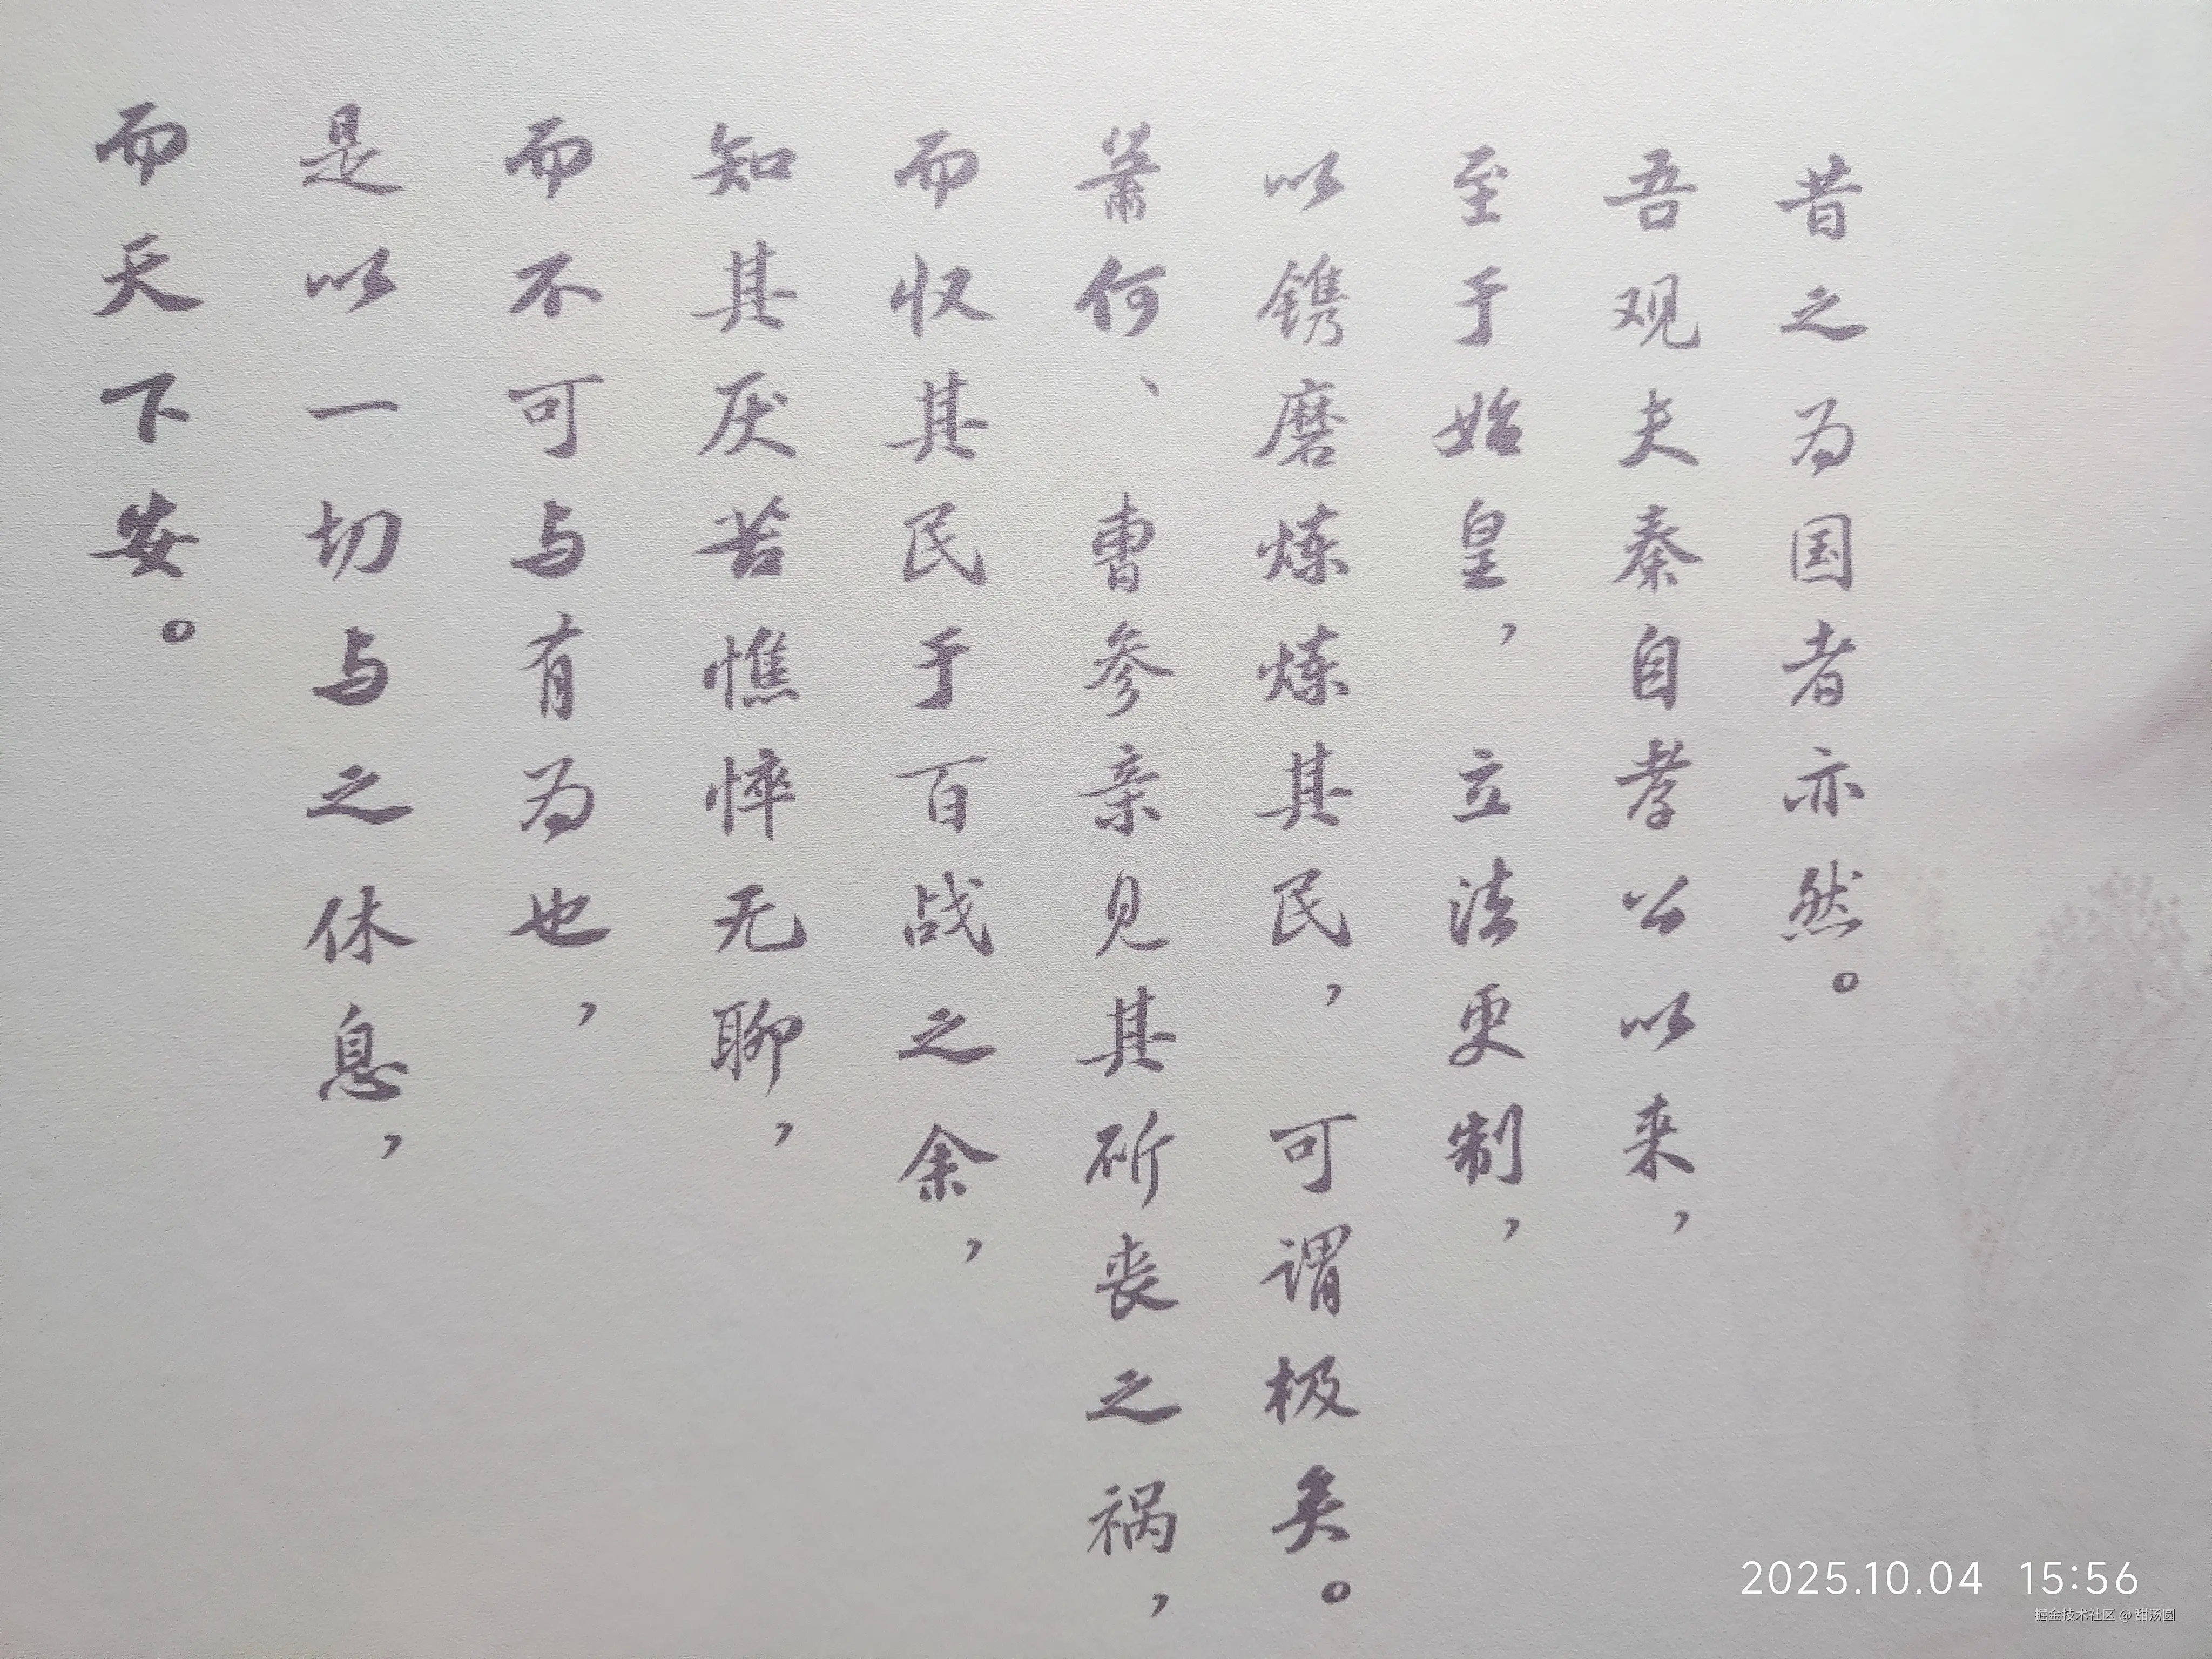 昔之为国者亦然。
吾观夫秦自孝公以来，
至于始皇，立法更制，
以镌磨炼炼其民，可谓极矣。
萧何、曹参亲见其斫丧之祸，
而收其民于百战之余，
知其厌苦憔悴无聊，
而不可与有为也，
是以一切与之休息，
而天下安。
2025.10.04 15:56
掘金技术社区 @ 甜汤圆